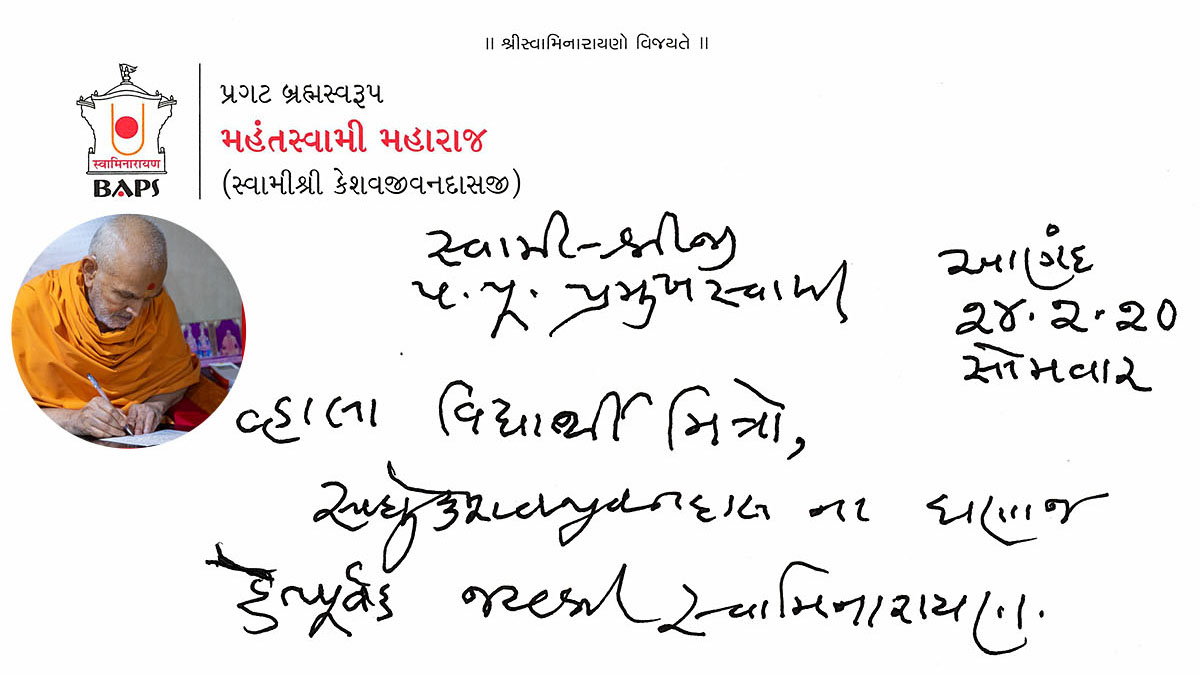 ॥ શ્રીસ્વામિનારાયણો વિજયતે ॥
પ્રગટ બ્રહ્મસ્વરૂપ
મહંતસ્વામી મહારાજ
(સ્વામીશ્રી કેશવજીવનદાસજી)
સ્વામિનારાયણ
BAPS
સ્વામી-શ્રીજી
પ.પૂ. પ્રમુખસ્વામી
આણંદ
૨૪.૨.૨૦
સોમવાર
વ્હાલા વિદ્યાર્થી મિત્રો,
સાધુ કેશવજીવનદાસ ના ઘણાજ
હેતપૂર્વક જયશ્રી સ્વામિનારાયણ.